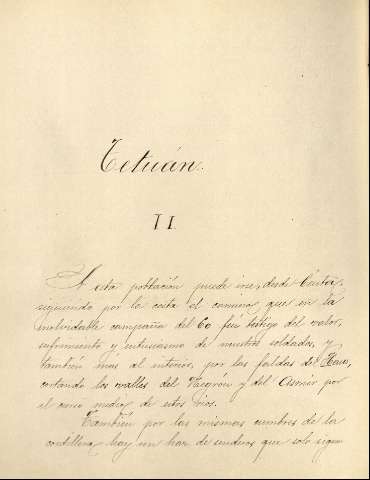 Tetuán.
II
A esta población puede irse, desde Ceuta,
siguiendo por la costa el camino que en la
inolvidable campaña del 60 fué testigo del valor,
sufrimiento y entusiasmo de nuestros soldados, y
también más al interior, por las faldas del Haus,
cortando los valles del y del Asmir por
el curso medio de estos ríos.
También por las mismas cumbres de la
cordillera, hay un haz de senderos que solo siguen